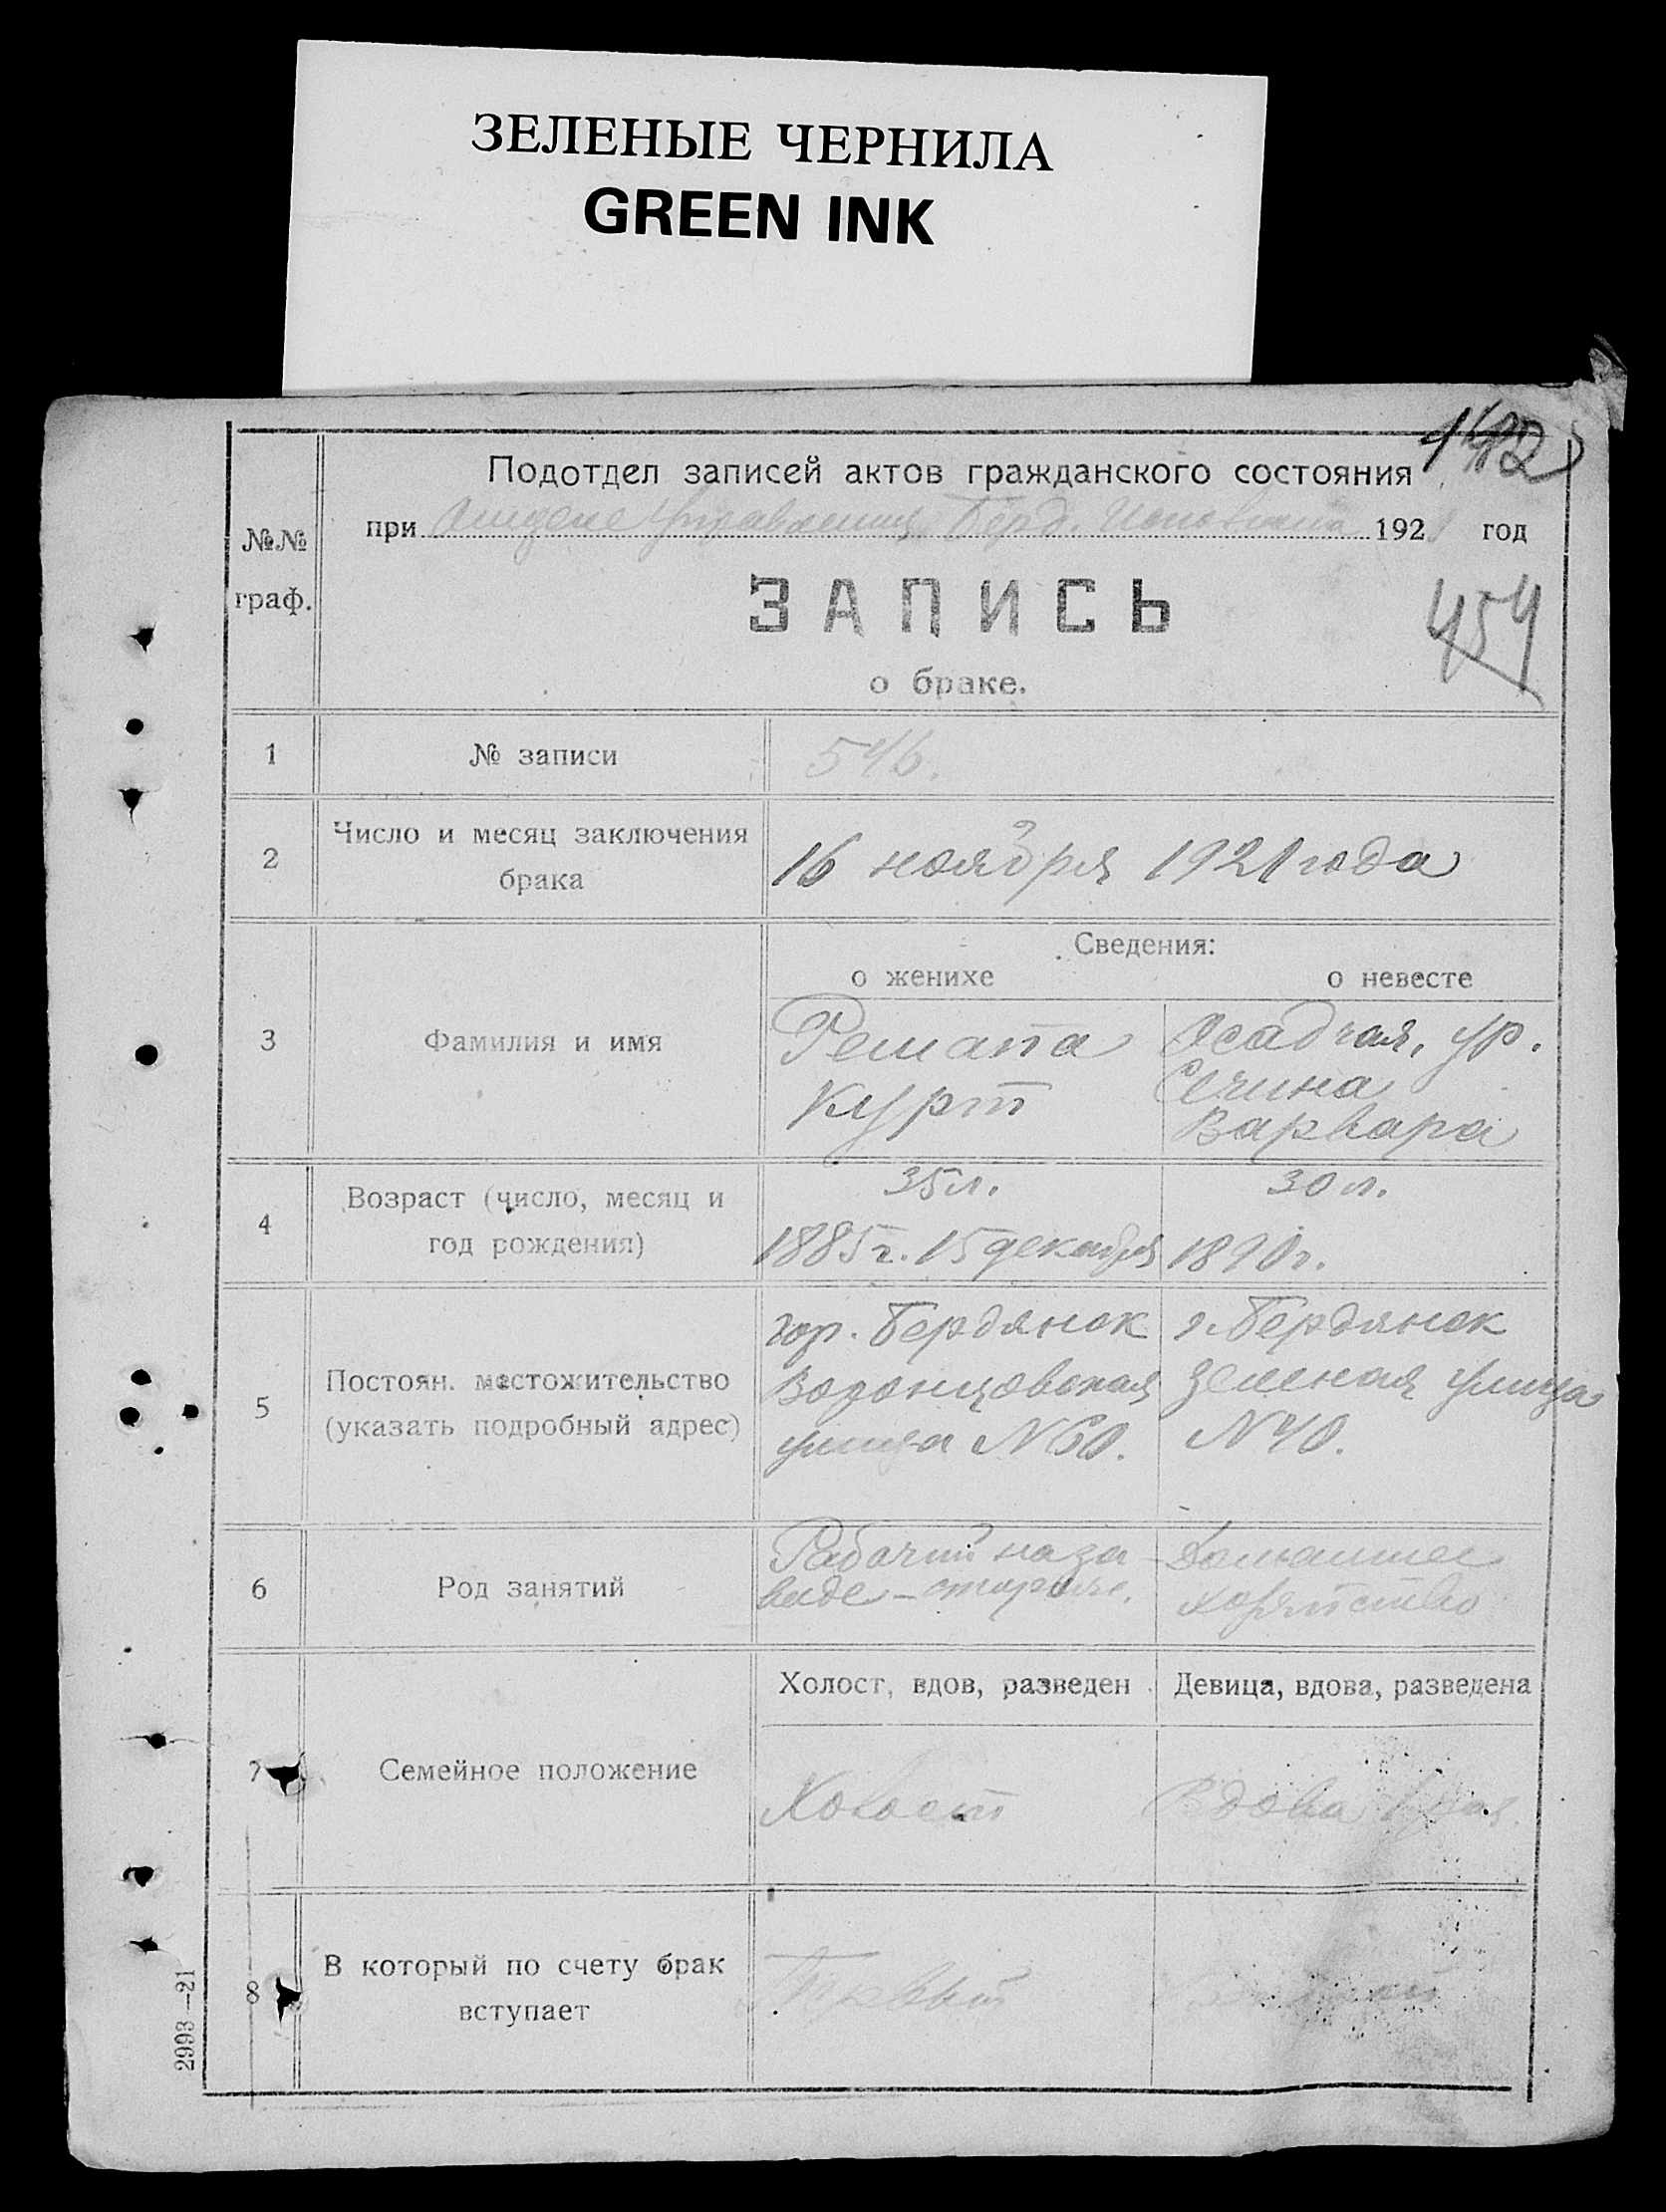 ЗЕЛЕНЫЕ ЧЕРНИЛА
GREEN INK
Подотдел записей актов гражданского состояния
при Отделе Управления Берд. Исполкома 192 год
№№
граф.
ЗАПИСЬ
454
о браке.
1 № записи 546.
2 Число и месяц заключения брака 16 ноября 1921 года
Сведения:
о женихе о невесте
3 Фамилия и имя
Осадчая, ур.
Курт
Варвара
4 Возраст (число, месяц и год рождения)
35 л. 30 л.
1885 г. 15 декабря 1890 г.
5 Постоян. местожительство
(указать подробный адрес)
гор. Бердянск г. Бердянск
Воронцовская Зеленая улица
улица N 60. N 40.
6 Род занятий
Рабочий на за- Домашнее
воде хозяйство
Холост, вдов, разведен Девица, вдова, разведена
7 Семейное положение
Холост Вдова
8 В который по счету брак
вступает
Первый
2993—21